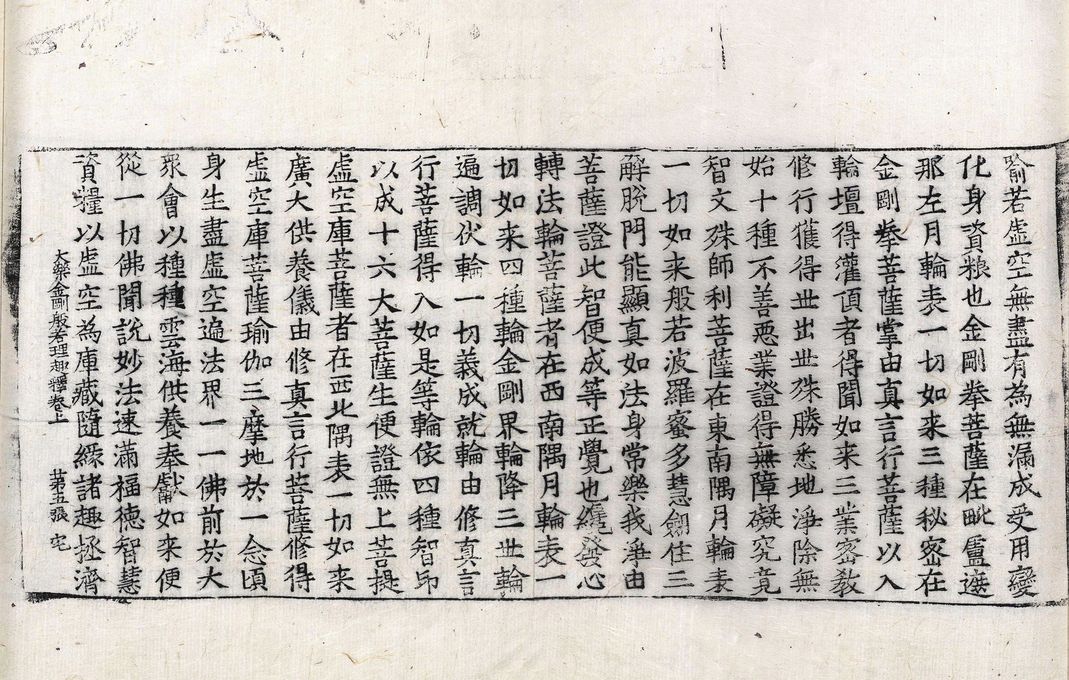 喻若虛空無盡有為無漏成受用變
化身資粮也金剛拳菩薩在毗盧遮
那左月輪表一切如来三種秘密在
金剛拳菩薩掌由真言行菩薩以入
輪壇得灌頂者得聞如来三業密教
修行獲得世出世殊勝悉地淨除無
始十種不善惡業證得無障礙究竟
智文殊師利菩薩在東南隅月輪表
一切如来般若波羅蜜多慧劒住三
解脫門能顯真如法身常樂我淨由
菩薩證此智便成等正覺也纔發心
轉法輪菩薩者在西南隅月輪表一
切如来四種輪金剛界輪降三世輪
遍調伏輪一切義成就輪由修真言
行菩薩得入如是等輪依四種智印
以成十六大菩薩生便證無上菩提
虛空庫菩薩者在西北隅表一切如来
廣大供養儀由修真言行菩薩修得
虛空庫菩薩瑜伽三摩地於一念頃
身生盡虛空遍法界一一佛前於大
衆會以種種雲海供養奉獻如来便
從一切佛聞說妙法速滿福德智慧
資糧以虛空為庫藏隨緣諸趣拯濟
大樂金剛般若理趣釋卷上 苐五張 宅